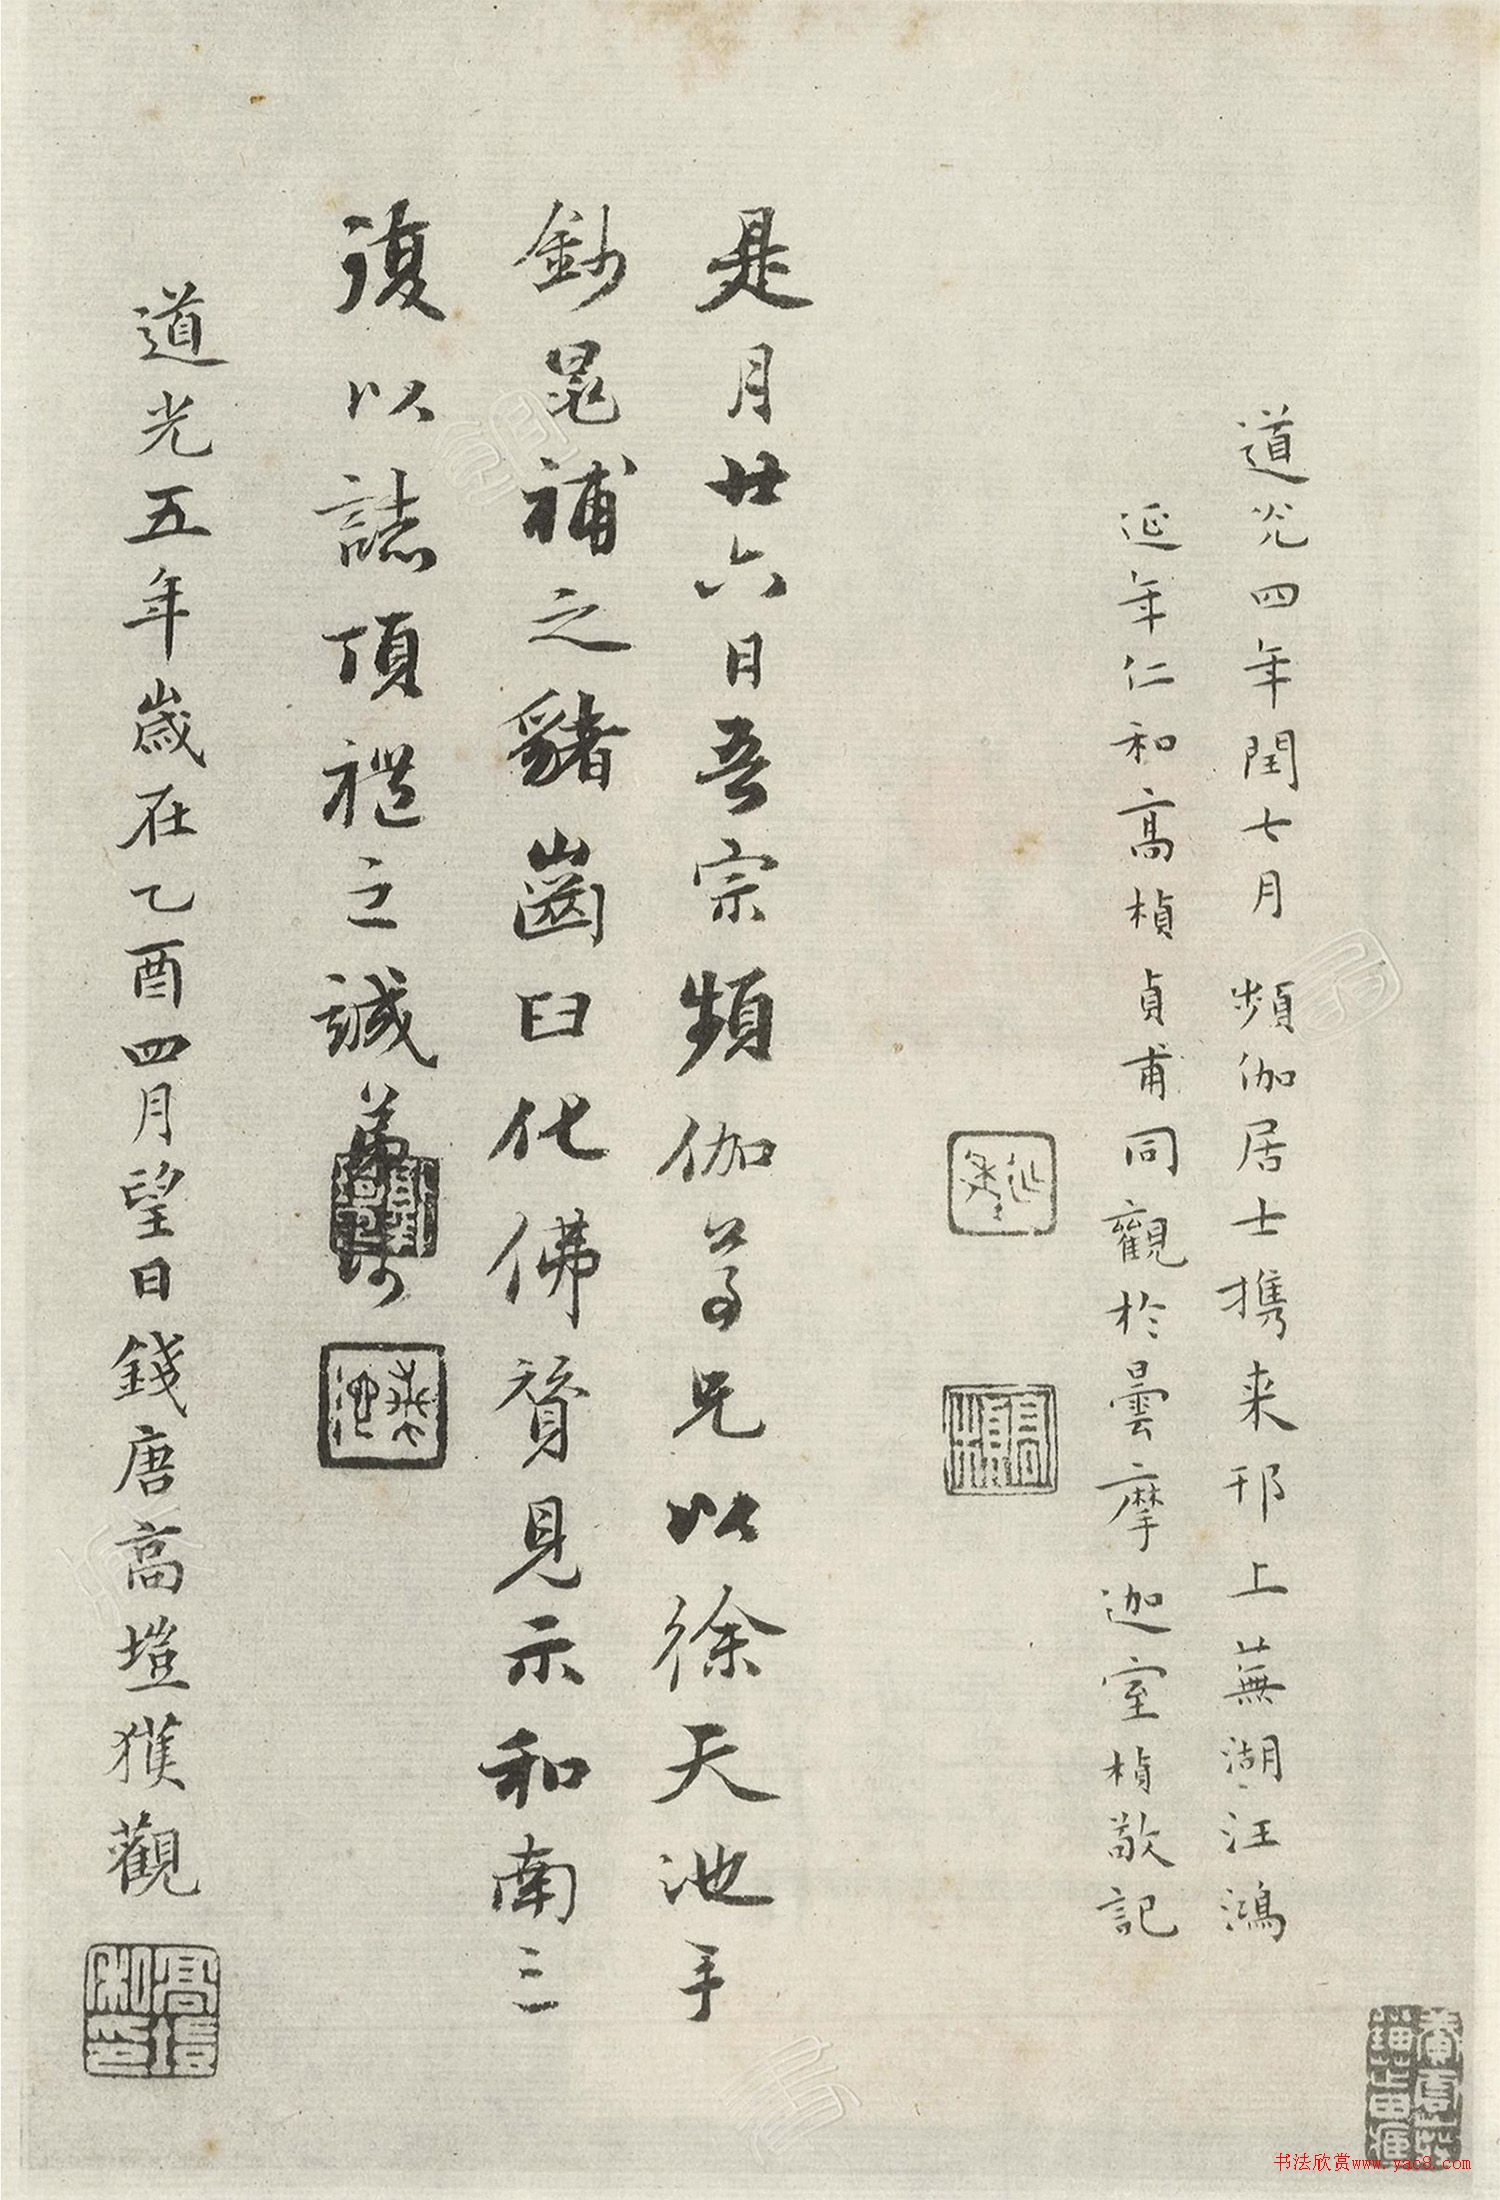 道光四年閏七月　頻伽居士攜来邗上蕪湖汪鴻
延年仁和高楨貞甫同觀於曇摩迦室楨敬記
延年
高楨
是月廿六日吾宗頻伽尊兄以徐天池手
鈔晁補之豬齒臼化佛贊見示和南三
復以誌頂禮之誠
道光五年歲在乙酉四月望日錢唐高塏獲觀
高塏
书法欣赏www.yac8.com